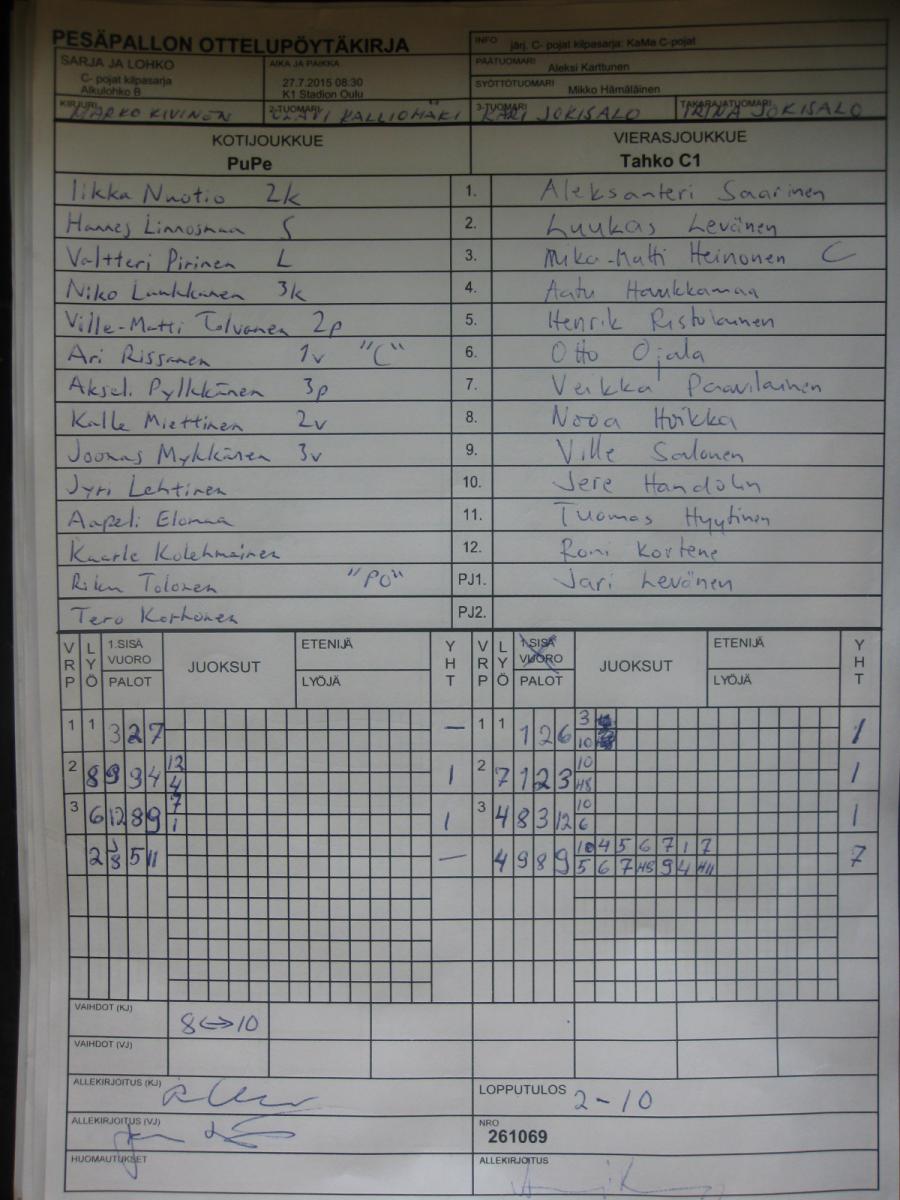 PESÄPALLON OTTELUPÖYTÄKIRJA
INFO järj. C- pojat kilpasarja: KaMa C-pojat
SARJA JA LOHKO
C- pojat kilpasarja
Alkulohko B
AIKA JA PAIKKA
27.7.2015 08:30
K1 Stadion Oulu
PÄÄTUOMARI Aleksi Karttunen
SYÖTTÖTUOMARI Mikko Hämäläinen
KIRJURI MARKO KIVINEN
2-TUOMARI OLAVI KALLIOMÄKI
3-TUOMARI KARI JOKISALO
TAKARAJATUOMARI IRINA JOKISALO
KOTIJOUKKUE VIERASJOUKKUE
PuPe Tahko C1
Iikka Nuotio 2k 1. Aleksanteri Saarinen
Hannes Linnosmaa S 2. Luukas Levänen
Valtteri Pirinen L 3. Mika-Matti Heinonen C
Niko Laukkanen 3k 4. Aatu Haukkamaa
Ville-Matti Tolvanen 2p 5. Henrik Ristolainen
Ari Rissanen 1v "C" 6. Otto Ojala
Akseli Pylkkänen 3p 7. Veikka Paavilainen
Kalle Miettinen 2v 8. Nooa Hoikka
Joonas Mykkänen 3v 9. Ville Salonen
Jyri Lehtinen 10. Jere Handolin
Aapeli Elomaa 11. Tuomas Hyytinen
Kaarle Kolehmainen 12. Roni Kortene
Riku Tolonen "PO" PJ1. Jari Levänen
Tero Korhonen PJ2.
VRP LYÖ 1.SISÄ VUORO PALOT JUOKSUT ETENIJÄ LYÖJÄ YHT VRP LYÖ 1.SISÄ VUORO PALOT JUOKSUT ETENIJÄ LYÖJÄ YHT
3 10
1 1 3 2 7 — 1 1 1 2 6 10 1
12 10
2 8 9 9 4 4 1 2 7 1 2 3 H8 1
7 10
3 6 12 8 9 1 1 3 4 8 3 12 6 1
10 4 5 6 7 1 7
2 8 5 11 — 4 9 8 9 5 6 7 H8 9 4 H11 7
VAIHDOT (KJ) 8<->10
VAIHDOT (VJ)
ALLEKIRJOITUS (KJ)
LOPPUTULOS 2-10
ALLEKIRJOITUS (VJ)
NRO
261069
HUOMAUTUKSET
ALLEKIRJOITUS